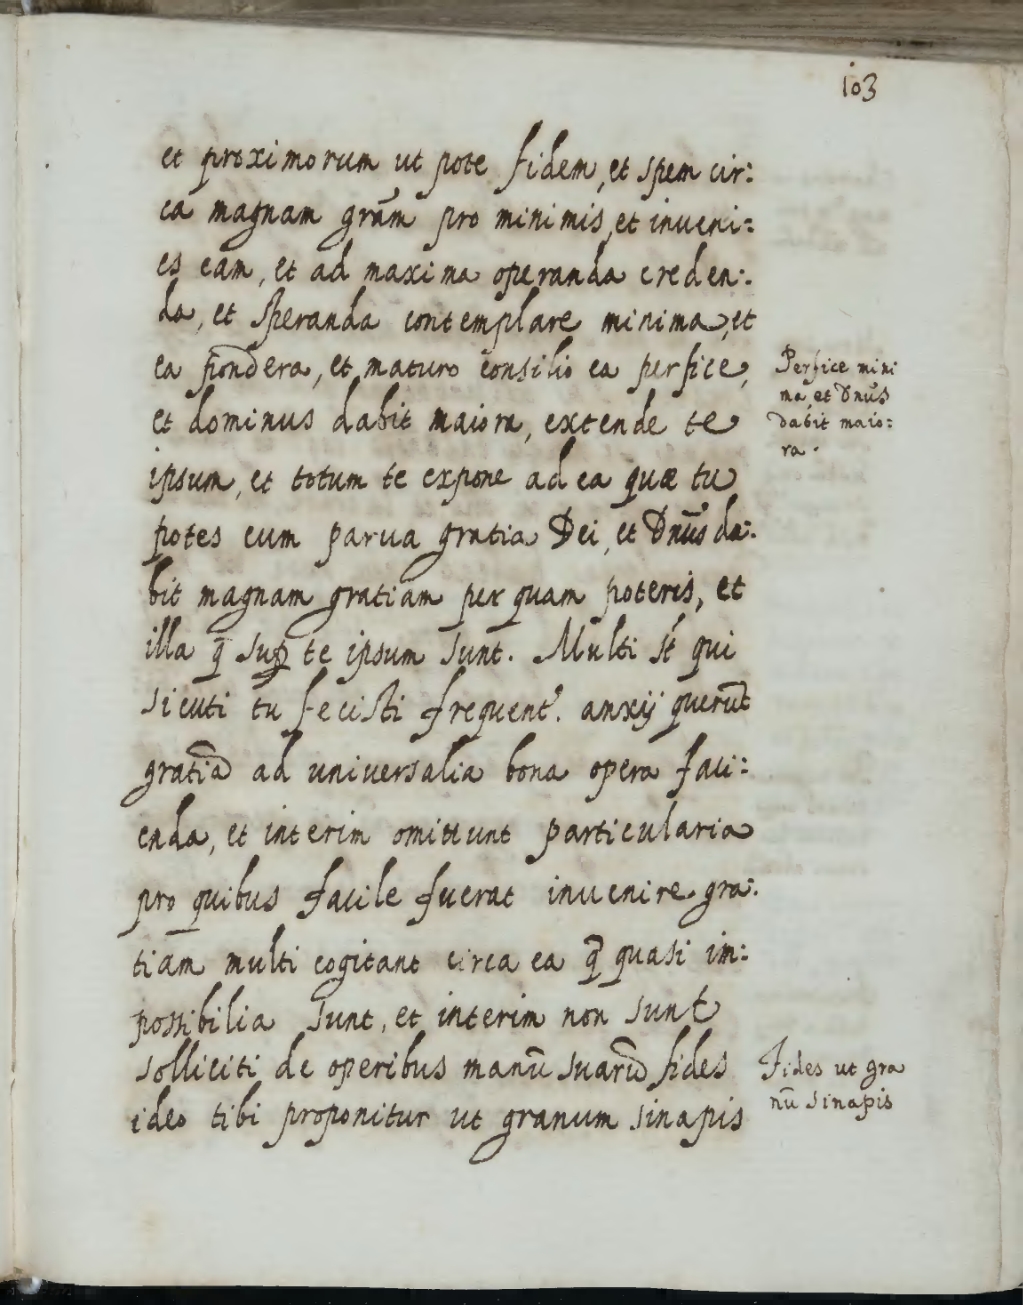 103
et proximorum ut pote fidem, et spem cir:
ca magnam grãm pro minimis, et inveni:
es eam, et ad maxima operanda creden:
da, et speranda contemplare minima, et
ea pondera, et maturo consilio ea perfice,
et dominus dabit maiora, extende te
ipsum, et totum te expone ad ea quæ tu
potes cum parua gratia Dei, et Dnũs da:
bit magnam gratiam per quam poteris, et
illa q̃ sup̱ te ipsum sunt. Multi st̃ qui
sicuti tu fecisti frequent.' anxij querũt
gratiã ad universalia bona opera faci:
enda, et interim omittunt particularia
pro quibus facile fuerat invenire gra:
tiam multi cogitant circa ea q̃ quasi im:
possibilia sunt, et interim non sunt
solliciti de operibus manũ suarũ fides
ideo tibi proponitur ut granum sinapis
Perfice mini
ma, et Dnũs
dabit maio:
ra.
Fides ut gra
nũ sinapis